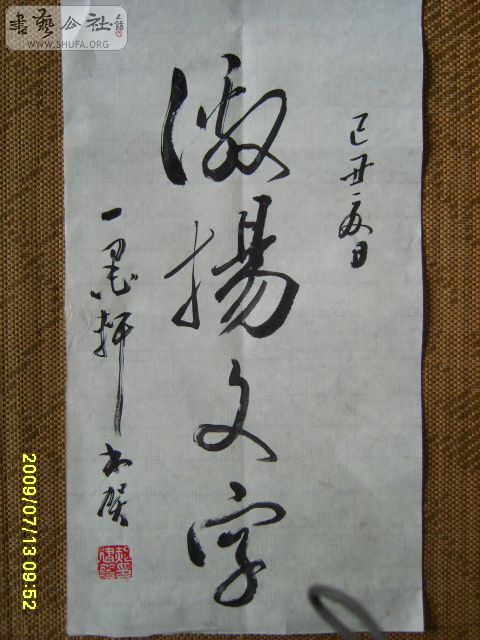 書藝公社
WWW.SHUFA.ORG
己丑夏日
激揚文字
一墨軒
2009/07/13 09:52